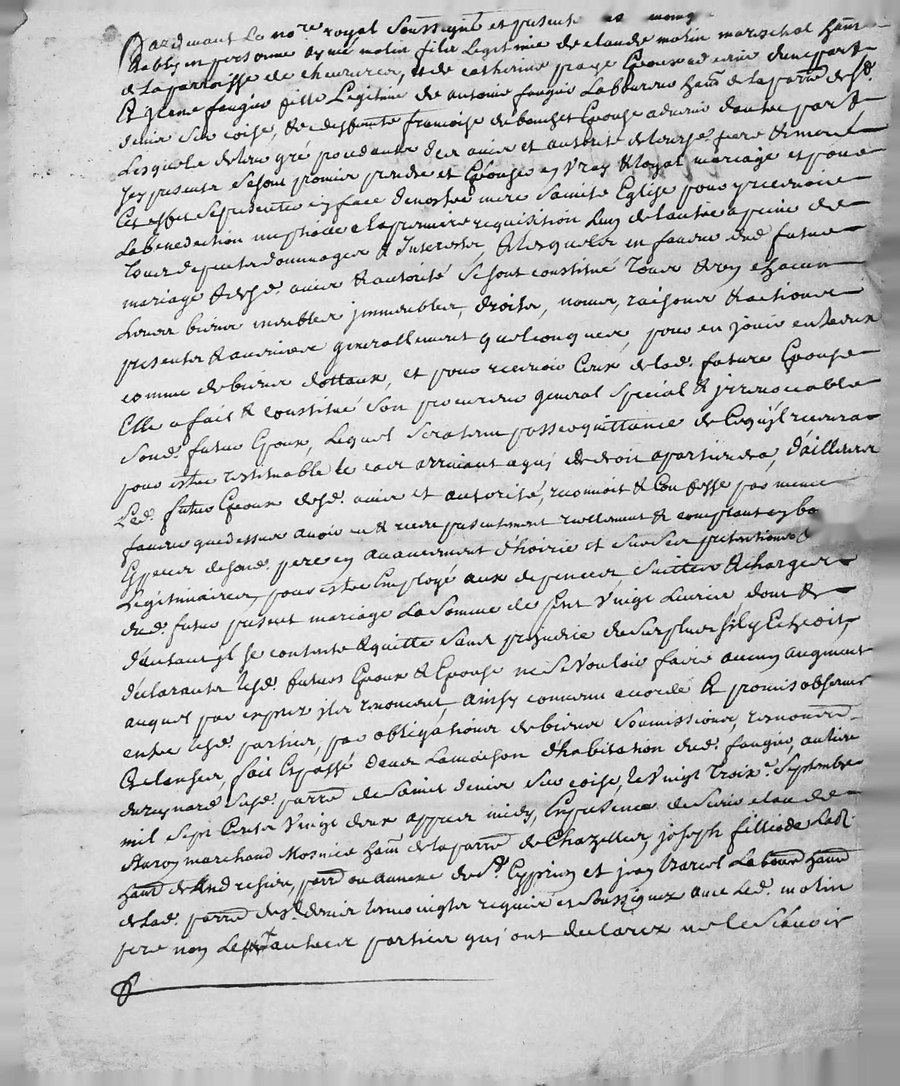 Pardevant Le no.re royal Soussigné et present es moing
Establys en personne aymé molin fils Legitime de claude molin mareschal ham
de la parroisse de chevrieres, et de catherine page Epoux advenir dune part
Et Jeane fougin fille Legitime de antoine fougin Laboureur ham de la parre de St.
denis Sur coise, & de deffunte francoise de bouchet Epouse advenir d'autre part
Lesquels de leur gré procedants des avis et autorité de leurs pere & mere
Icy presents Se sont promis prendre et Epouser en vray & loyal mariage et pour
Cet effet Se presenter en face de nostre mere Sainte Eglise pour y recevoir
La benediction nuptialle a la premiere requisition Lun de lautre a peine de
Tous depents dommages & Interests, & Lesquels en faveur dud futur
mariage & desd. avis & autorité Se sont constitué Tous & un chacun
Leurs biens meubles immeubles, droits, noms, raisons & actions
presents & avenir generallement quelconques, pour en jouir entreux
comme de biens dottaux, et pour recevoir Ceux de lad. future Epouse
Elle a fait & constitué Son procureur general Special & irrevocable
Soud. futur Epoux, Lequel Sera tenu passer quittance de Ce quil recevra
pour estre restituable le cas arrivant a qui de droit apartiendra, d'ailleurs
Led. futur Epoux desd. avis et autorité, reconnoit & Confesse par meme
faveur que dessus avoir eu & receu presentement reellement & comptant en bo
Especes de Soud. pere en avancement d'hoirie et Sur Ses pretentions
Legitimaires, pour estre Employé aux depences, Suittes & charges
dud. futur present mariage La Somme de Cent vingt Livres dont &
d'autant il Se contente & quitte Sans prejudice du Surplus Sily Echeoit,
déclarants lesd. futurs Epoux & Epouse ne Se vouloir faire aucun augment
auquel par exprez ils renoncent, Ainsy convenu accordé & promis observer
entre lesd. parties, par obligations de biens Soumissions, renonced.
Et clauses, fait Et passé dans La maison d'habitation dud. fougin, au lieu
du reynard Susd. parre de Saint denis Sur coise, le vingt Troix.e Septembre
mil Sept Cents vingt deux appres midy, En presence de Sieur claude
Staron marchand Mosnier ham de la parre de Chazelles, joseph filliode Lab.r
hant. de Andresieu, parre ou annexe de St. Cyprien et jean Marcel Laboureur hant
de lad. parre de St. denis temoingts requis et Soussignez avec Led. molin
pere non Les autres parties qui ont declarez ne le Scavoir